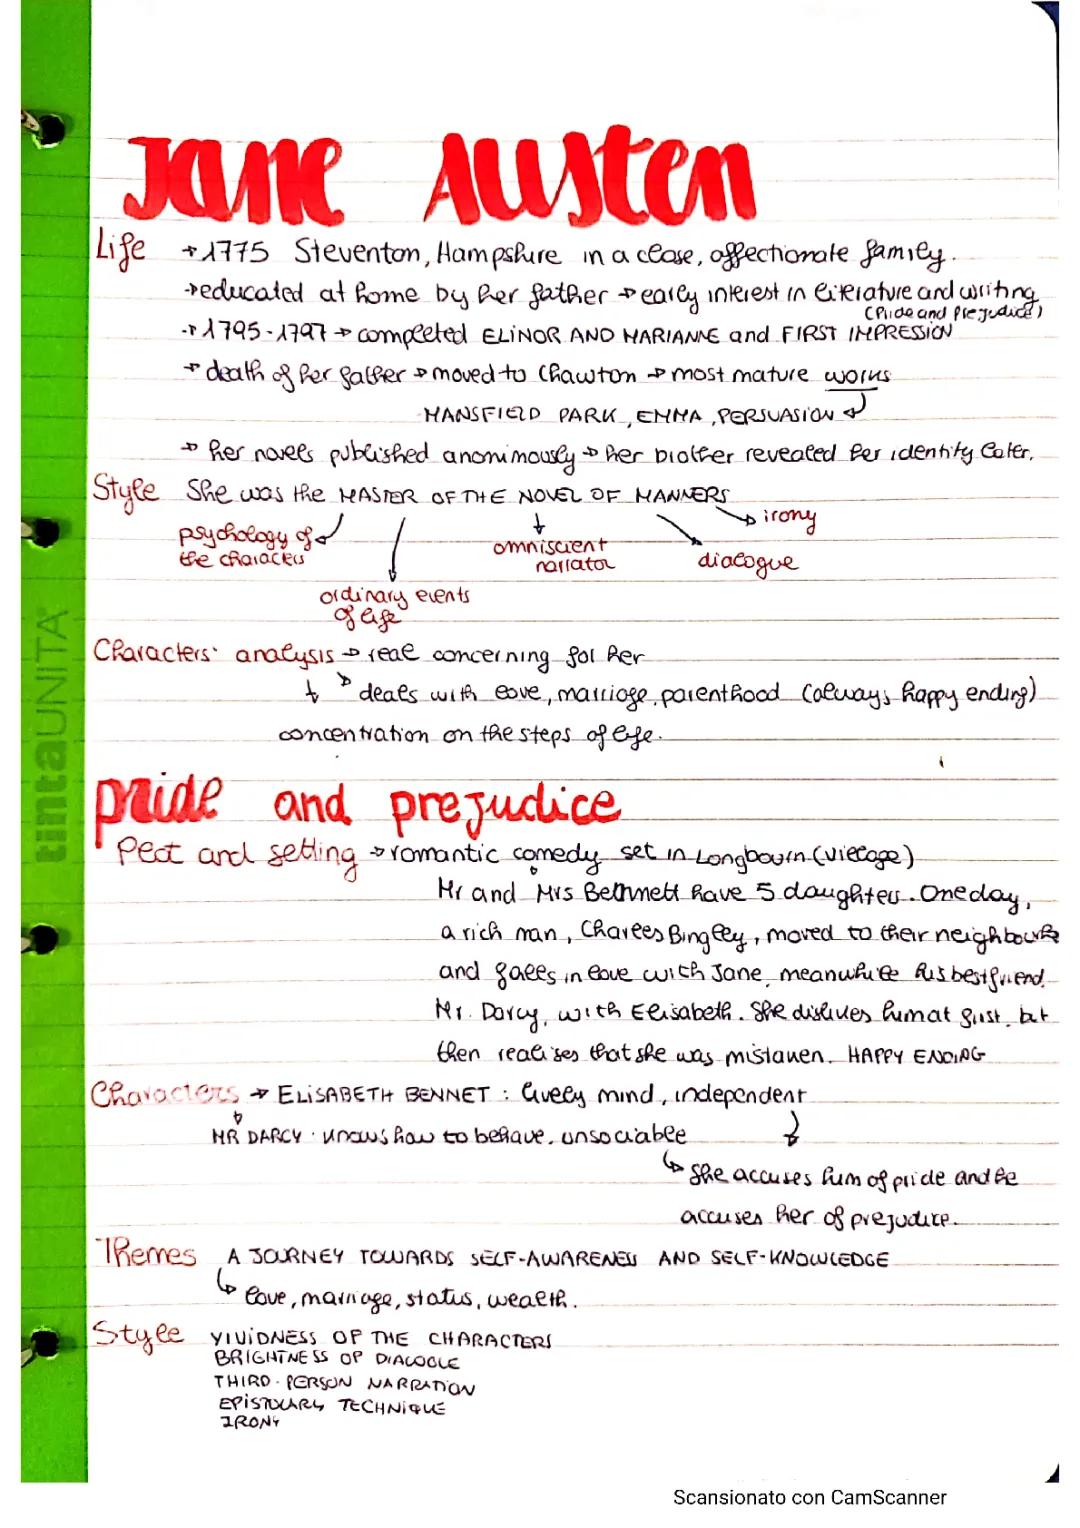 Jane Austen
Life → 1775 Steventon, Hampshire in a close, affectionate family.
→ educated at home by her father → early interest in literature and writing
(Pride and Prejudice)
→ 1795-1797 → completed ELINOR AND MARIANNE and FIRST IMPRESSION
→ death of her father → moved to Chawton → most mature works
MANSFIELD PARK, EMMA, PERSUASION
→ her novels published anonimously → her brother revealed her identity later.
Style She was the MASTER OF THE NOVEL OF MANNERS
→ irony
psychology of
the characters
omniscient
narrator
dialogue
ordinary events
of life
Characters' analysis → real concerning for her
deals with love, marriage, parenthood (always happy ending)
concentration on the steps of life.
pride and prejudice
Plot and setting → romantic comedy set in Longbourn (village)
Mr and Mrs Bethnett have 5 daughters. One day,
a rich man, Charles Bingley, moved to their neighbourh
and falls in love with Jane, meanwhile his best friend.
Mr. Darcy, with Elisabeth. She dislikes him at first, but
then realises that she was mistaken. HAPPY ENDING
Characters → ELISABETH BENNET : lively mind, independent
MR DARCY : knows how to behave, unsociable
She accuses him of pride and he
accuses her of prejudice.
Themes A JOURNEY TOWARDS SELF-AWARENESS AND SELF-KNOWLEDGE
love, marriage, status, wealth.
Style VIVIDNESS OF THE CHARACTERS
BRIGHTNESS OF DIALOGUE
THIRD-PERSON NARRATION
EPISTOLARY TECHNIQUE
IRONY
tintaUNITA
Scansionato con CamScanner